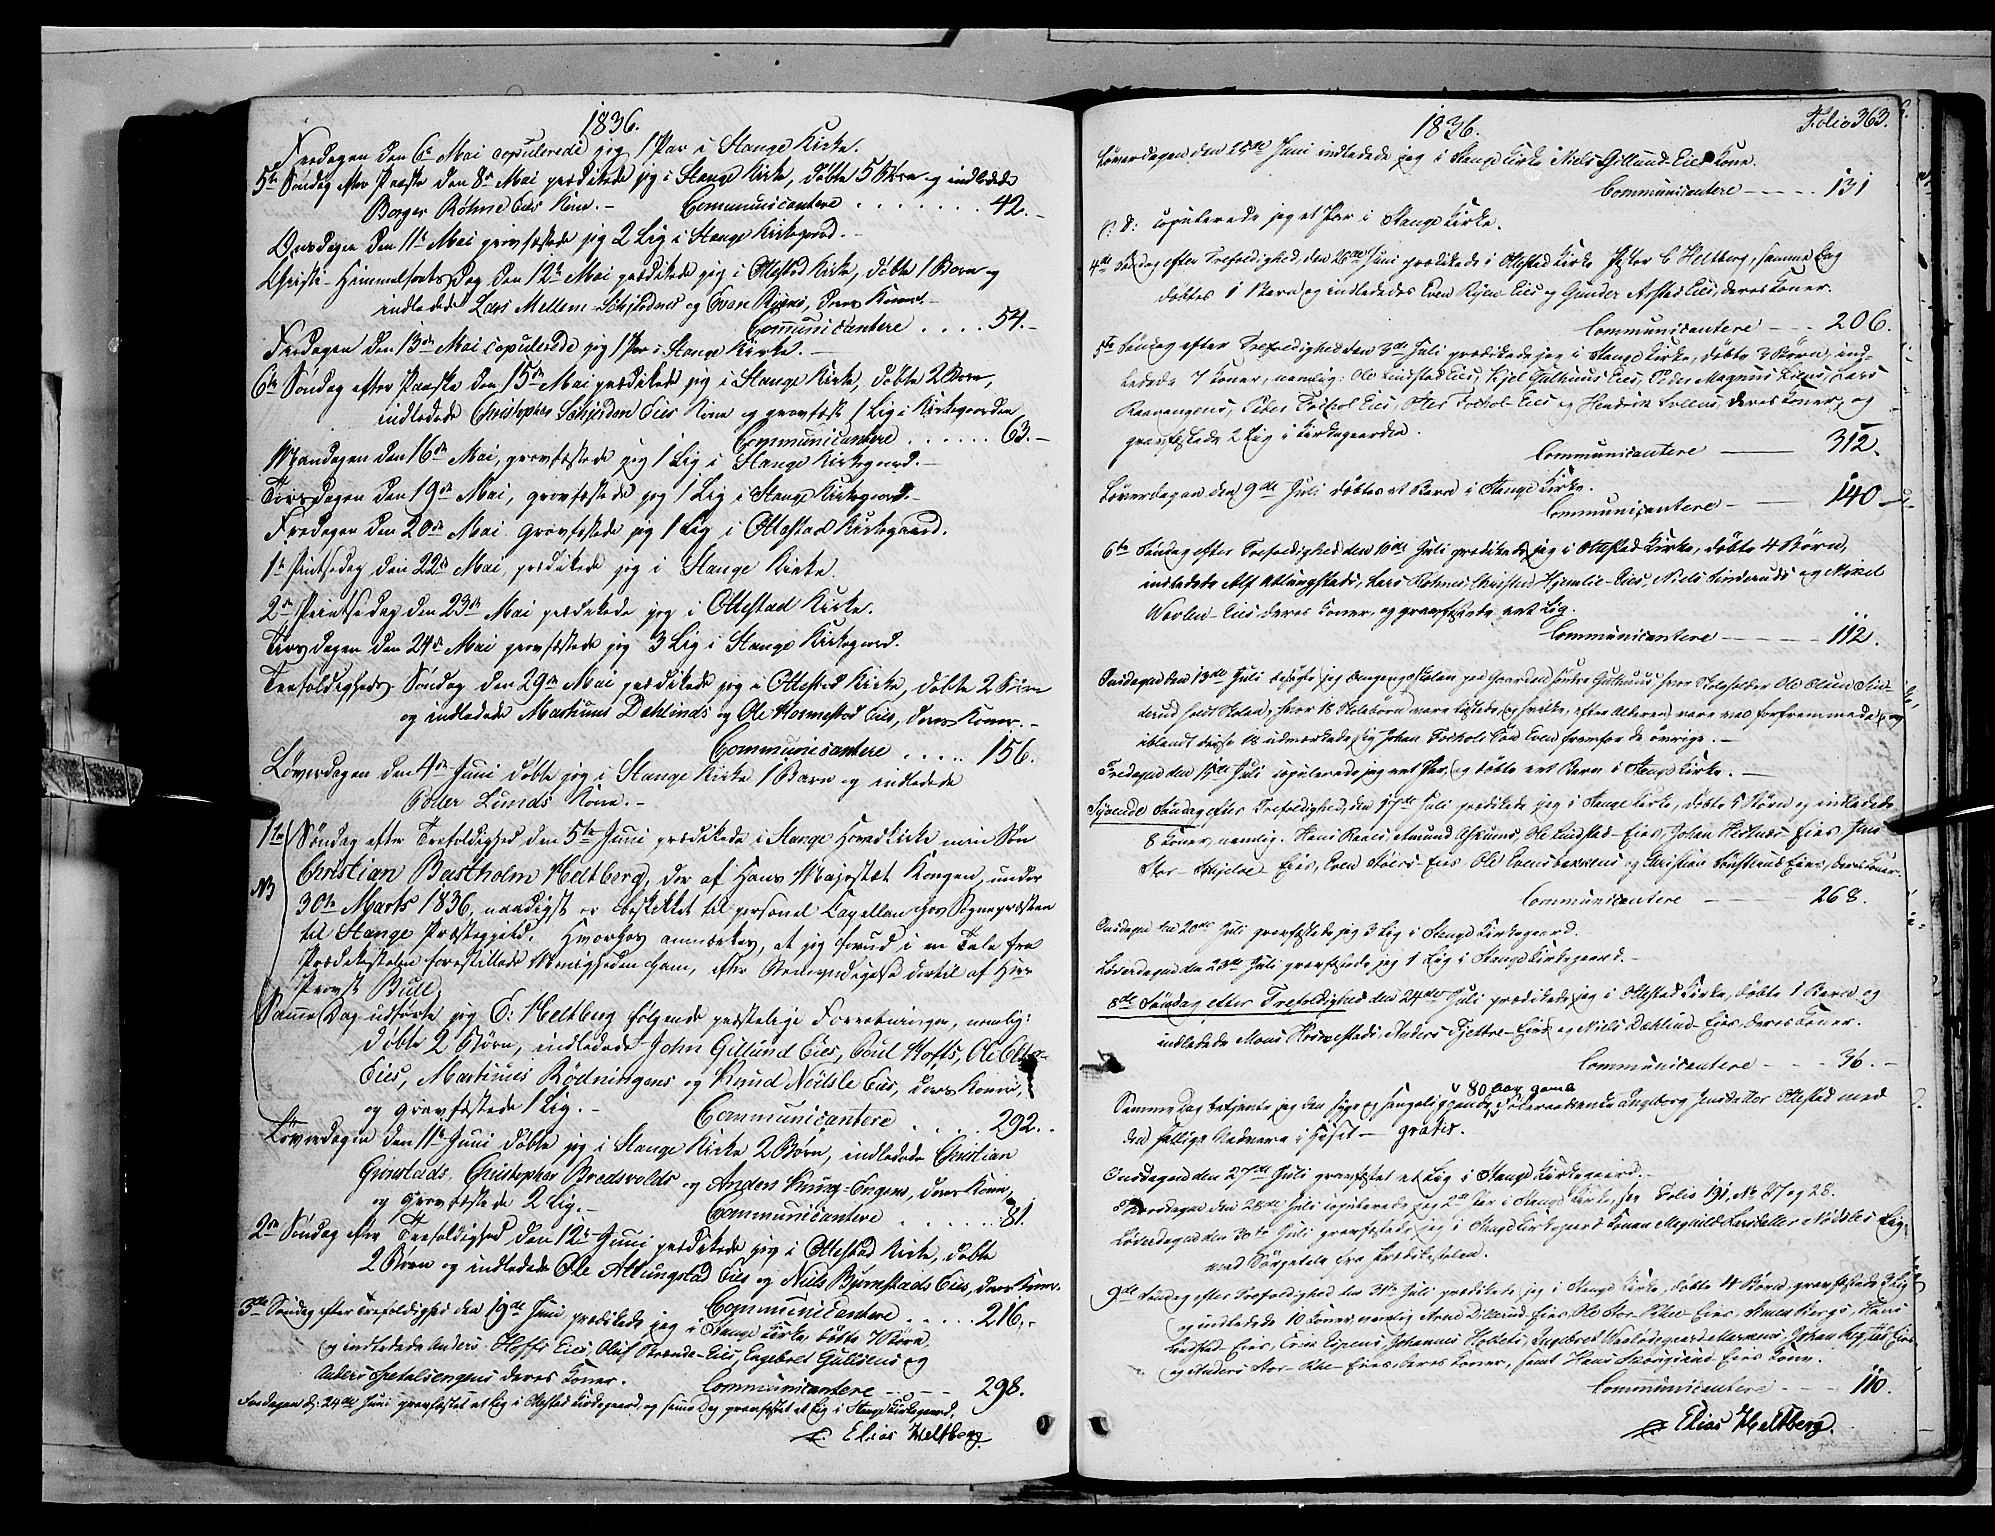 1836.
Fredagen den 6te Mai copulerede jeg 1 Par i Stange Kirke.
5te Søndag efter Paaske den 8de Mai prædikede jeg i Stange Kirke, døbte 5 Børn og indledede
Borger Røhne Eies Kone. - Communicantere . . . . . . . 42. -
Onsdagen den 11te Mai gravfæstede jeg 2 Lig i Stange Kirkegaard. -
Christi-Himmelfarts Dag den 12te Mai prædikede jeg i Ottestad Kirke, døbte 1 Barn og
indledede Lars Mellem- og Even Ryens, deres Koner. -
Communicantere . . . . 54. -
Fredagen den 13de Mai copulerede jeg 1 Par i Stange Kirke. -
6te Søndag efter Paaske den 15de Mai prædikede jeg i Stange Kirke, døbte 2 Børn,
indledede Christopher Eies Kone og gravfæste 1 Lig i Kirkegaarden
Communicantere . . . . . . 63. -
Mandagen den 16de Mai, gravfæstede jeg 1 Lig i Stange Kirkegaard. -
Torsdagen den 19de Mai, gravfæstede jeg 1 Lig i Stange Kirkegaard. -
Fredagen den 20de Mai gravfæstede jeg 1 Lig i Ottestad Kirkegaard.
1te Pintsedag den 22de Mai, prædikede jeg i Stange Kirke.
2den Pintsedag den 23de Mai prædikede jeg i Ottestad Kirke.
Tirsdagen den 24de Mai gravfæstede jeg 3 Lig i Stange Kirkegaard.
Trefoldigheds Søndag den 29de Mai prædikede jeg i Ottestad Kirke, døbte 2 Børn
og indledede Martinus Dæhlinds og Ole Hosmestad Eies, deres Koner. -
Communicantere . . . . . 156.
Løverdagen den 4de Juni døbte jeg i Stange Kirke 1 Barn og indledede
Peder Lunds Kone. -
1te Søndag efter Trefoldighed den 5te Juni prædikede i Stange Hovedkirke min Søn
Christian Bastholm Heltberg, der af Hans Majestæt Kongen, under
NB 30te Marts 1836, naadigst er beskikket til personel Capellan hos Sognepræsten
til Stange Præstegjeld. Hvorhos anmærkes, at jeg forud i en Tale fra
Prædikestolen forestillede Menigheden ham, efter Bemyndigelse dertil af Herr
Provst Bull.
Samme Dag udførte jeg E: Heltberg følgende præstelige Forretninger, nemlig:
døbte 2 Børn, indledede John Gillund Eies, Poul Hoffs, Ole
Eies, Martinus Rødningens og Knud Nøttsle Eies, deres Koner,
og gravfæstede 1 Lig. - Communicantere . . . . 292. -
Løverdagen den 11te Juni døbte jeg i Stange Kirke 2 Børn, indledede Christian
Grinstads, Christopher Bredsvolds og Anders Engens, deres Koner,
og gravfæstede 2 Lig. - Communicantere . . . . . . 81.
2den Søndag efter Trefoldighed den 12te Juni prædikede jeg i Ottestad Kirke, døbte
2 Børn og indledede Ole Allungstad Eies og Niels Bjørnstads Eies, deres Koner.
Communicantere . . . . . 216. -
3die Søndag efter Trefoldighed den 19de Juni prædikede jeg i Stange Kirke, døbte 7 Børn
og indledede Anders Hoffs Eies, Oluf Eies, Engebret Gulsens og
Anders deres Koner. Communicantere - - - - 298.
Fredagen d: 24de Juni gravfæstet et Lig i Ottestad Kirkegaard, og samme Dag gravfæstet et Lig i Stange Kirkegaard.
Elias Heltberg
1836. Folio 363.
Løverdagen den 25de Juni indledede jeg i Stange Kirke Niels Gillund Eies Kone.
Communicantere - - - - 131
S: D: copulerede jeg et Par i Stange Kirke.
4de Søndag efter Trefoldighed, den 26de Juni prædikede i Ottestad Kirke Pastor C Heltberg, samme Dag
døbtes 1 Barn og indledede Even Ryen Eies og Gunder Eies, deres Koner.
Communicantere - - - 206.
5te Søndag efter Trefoldighed den 3die Juli prædikede jeg i Stange Kirke, døbte 3 Børn, ind-
ledede 7 Koner, nemlig: Ole Lindstad Eies, Kjel Guthuus Eies, Peder Magnus Lars
Peder Eies, Eies og Hendrik deres Koner, og
gravfæstede 2 Lig i Kirkegaarden.
Communicantere ---- 312.
Løverdagen den 9de Juli døbtes et Barn i Stange Kirke.
Communicantere ---- 140
6te Søndag efter Trefoldighed den 10de Juli prædikede jeg i Ottestad Kirke, døbte 4 Børn,
indledede Alf Lars Røhnes, Hjemlie-Eies, Niels og Mikel
Eies deres Koner, og gravfæstede et Lig.
Communicantere - - - - 112.
Onsdagen den 13de Juli besøgte jeg Omgangsskolen paa Gaarden Guthuus, hvor Skoleholder Ole Olsen Sin-
derud holdt Skolen, hvor 18 Skolebørn vare tilstede, og hvilke, efter Alderen, vare vel forfremmede, og
iblandt disse 18 udmærkede sig Johan Søn Even fremfor de øvrige. -
Fredagen den 15de Juli copulerede jeg et Par, og døbte et Barn i Stange Kirke. -
Syvende Søndag efter Trefoldighed, den 17de Juli prædikede jeg i Stange Kirke, døbte 5 Børn og indledede
8 Koner, nemlig. Hans Amund Ole Lindstad-Eies, Johan Eies, Jens
Stor- Eies, Even Eies Ole Evensbakkens og Christian Eies, deres Koner.
Communicantere ---- 268.
Onsdagen den 20de Juli gravfæstede jeg 3 Lig i Stange Kirkegaard.
Løverdagen den 23de Juli gravfæstede jeg 1 Lig i Stange Kirkegaard. -
8de Søndag efter Trefoldighed den 24de Juli prædikede jeg i Ottestad Kirke, døbte 1 Barn og
indledede Mons Hosmestads, Anders Tjettre-Eies og Niels Dæhlind-Eies, deres Koner.
Communicantere - - - 36. -
Samme Dag betjente jeg den syge og sengeliggende, 80 Aar gamle Ingeborg Jensdatter Ottestad med
den hellige Nadvere i Huset - gratis.
Onsdagen den 27de Juli gravfæstet et Lig i Stange Kirkegaard. -
Torsdagen den 28de Juli copulerede jeg 2de Par i Stange Kirke, see Folio 191, No 27 og 28.
Løverdagen den 30te Juli gravfæstede jeg i Stange Kirkegaard Larsdatter Nøttsles Lig,
med Sørgetale fra Prædikestolen.
9de Søndag efter Trefoldighed den 31te Juli prædikede jeg i Stange Kirke, døbte 4 Børn, gravfæstede 3 Lig
og indledede 10 Koner, nemlig Arne Eies, Ole Stor Eies, Hans
Lindstad-Eies, Johannes Ingebret Johan Eies
og Anders Stor- Eies, deres Koner, samt Hans Eies Kone.
Communicantere - - - 110.
Elias Heltberg.